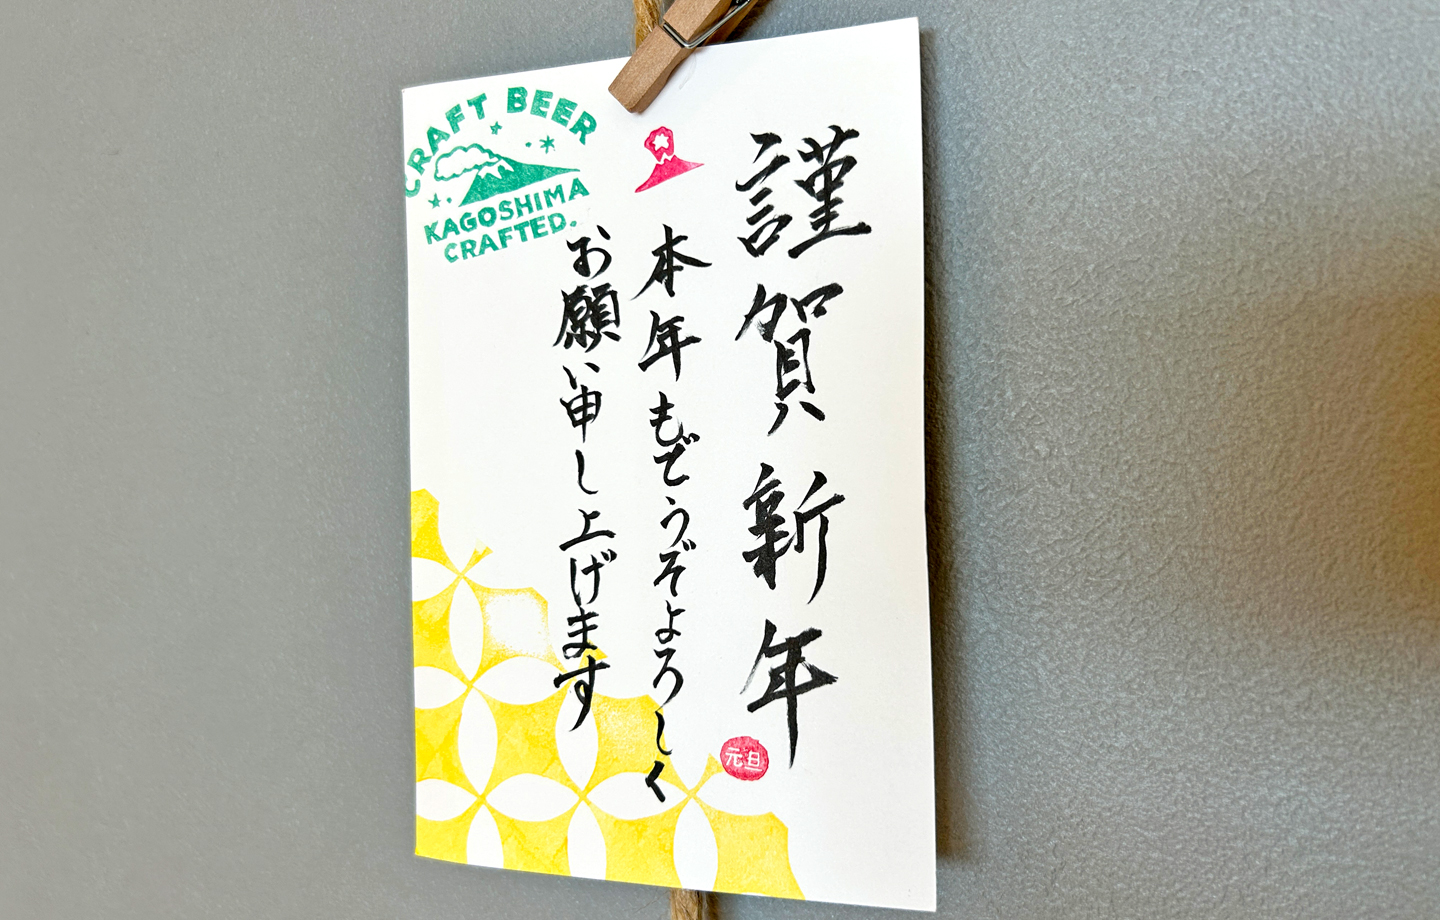 謹賀新年
本年もどうぞよろしく
お願い申し上げます
CRAFT BEER
KAGOSHIMA
CRAFTED.
元旦